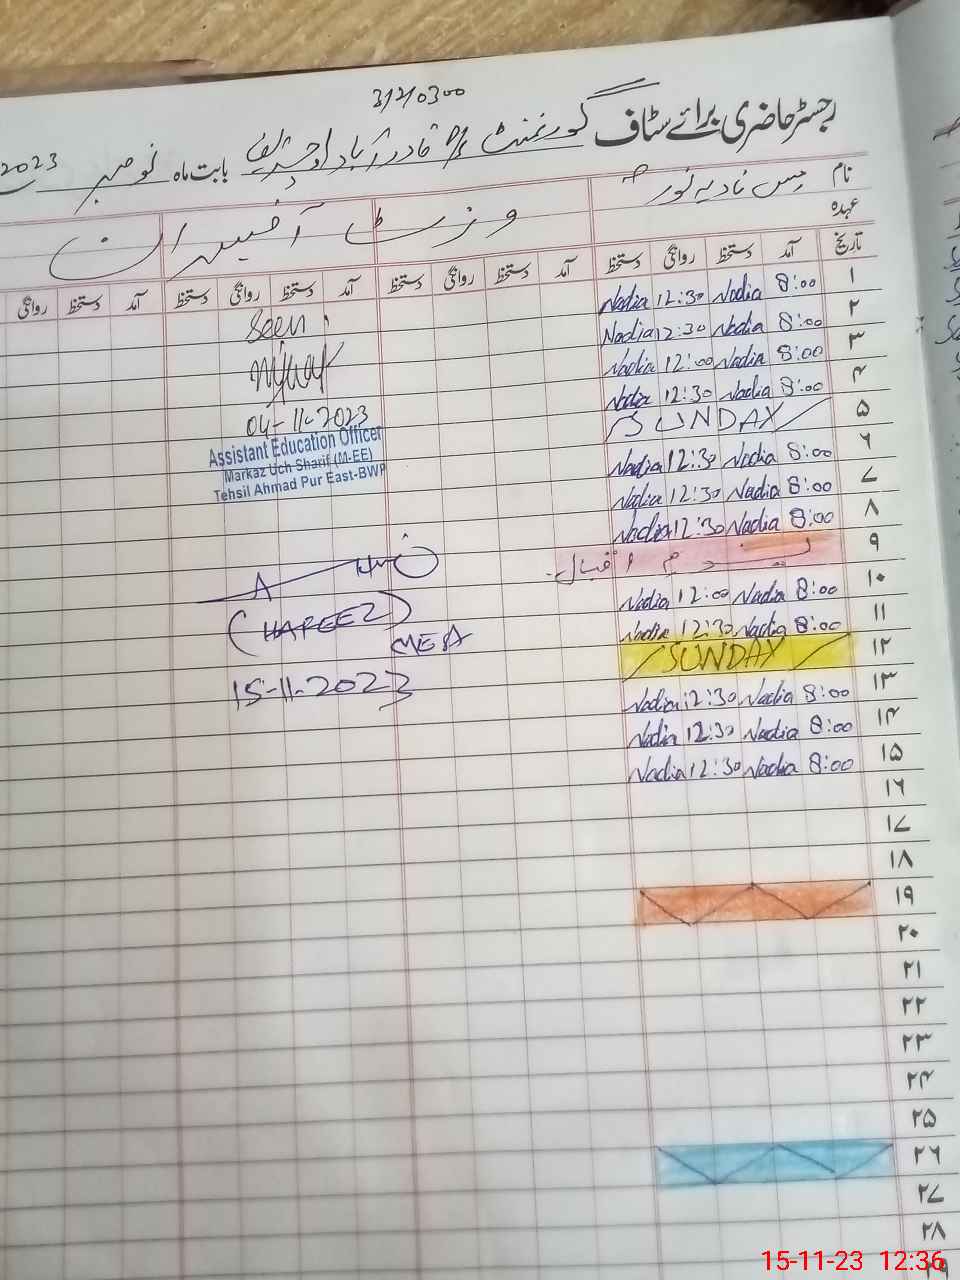 31210300
رجسٹر حاضری برائے سٹاف گورنمنٹ P/S قادر آباد اوچشریف بابت ماہ نومبر 2023
نام مس نادیہ نور
عہدہ
وزٹ آفیسران
تاریخ آمد دستخط روانگی دستخط آمد دستخط روانگی دستخط آمد دستخط روانگی دستخط آمد دستخط روانگی
۱ 8:00 Nadia 12:30 Nadia
۲ 8:00 Nadia 12:30 Nadia
۳ 8:00 Nadia 12:00 Nadia
۴ 8:00 Nadia 12:30 Nadia
۵ SUNDAY
۶ 8:00 Nadia 12:30 Nadia
۷ 8:00 Nadia 12:30 Nadia
۸ 8:00 Nadia 12:30 Nadia
۹ یوم اقبال
۱۰ 8:00 Nadia 12:00 Nadia
۱۱ 8:00 Nadia 12:30 Nadia
۱۲ SUNDAY
۱۳ 8:00 Nadia 12:30 Nadia
۱۴ 8:00 Nadia 12:30 Nadia
۱۵ 8:00 Nadia 12:30 Nadia
۱۶
۱۷
۱۸
۱۹
۲۰
۲۱
۲۲
۲۳
۲۴
۲۵
۲۶
۲۷
۲۸
۲۹
Seen
04-11-2023
Assistant Education Officer
Markaz Uch Sharif (M-EE)
Tehsil Ahmad Pur East-BWP
(HAFEEZ)
MEA
15-11-2023
15-11-23 12:36